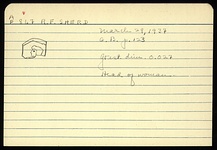 A
B 867 A.F. SHERD
March 28, 1927
C.B. p. 123
Great dim. 0.027
Head of woman.